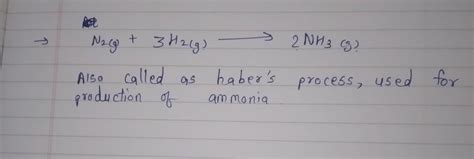 → N₂(g) + 3H₂(g) ⟶ 2NH₃ (g)
Also called as haber's process, used for
production of ammonia